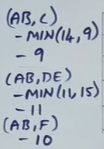 (AB,C)
- MIN(14,9)
- 9
(AB,DE)
- MIN(11,15)
- 11
(AB,F)
- 10